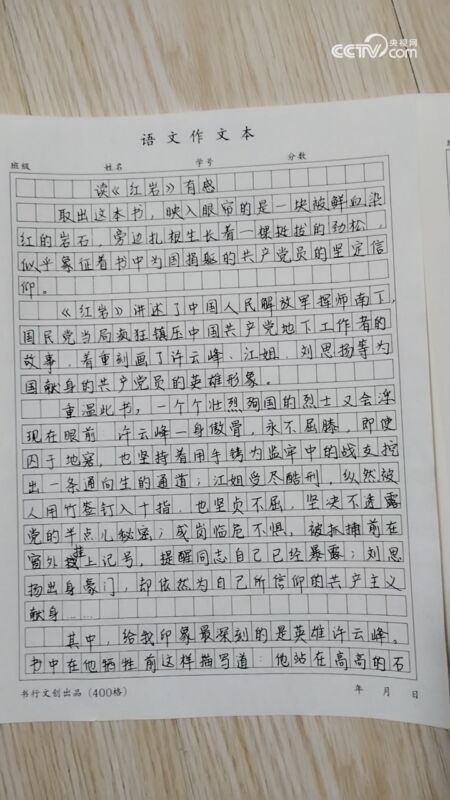 CCTV 央视网
com
语文作文本
班级 姓名 学号 分数
读《红岩》有感
取出这本书,映入眼帘的是一块被鲜血染
红的岩石,旁边扎根生长着一棵挺拔的劲松,
似乎象征着书中为国捐躯的共产党员的坚定信
仰。
《红岩》讲述了中国人民解放军挥师南下,
国民党当局疯狂镇压中国共产党地下工作者的
故事,着重刻画了许云峰、江姐、刘思扬等为
国献身的共产党员的英雄形象。
重温此书,一个个壮烈殉国的烈士又会浮
现在眼前 许云峰一身傲骨,永不屈膝,即使
囚于地窖,也坚持着用手铐为监牢中的战友挖
出一条通向生的通道;江姐受尽酷刑,纵然被
人用竹签钉入十指,也坚贞不屈,坚决不透露
党的半点儿秘密;成岗临危不惧,被抓捕前在
窗外挂上记号,提醒同志自己已经暴露;刘思
扬出身豪门,却依然为自己所信仰的共产主义
献身……
其中,给我印象最深刻的是英雄许云峰。
书中在他牺牲前这样描写道:他站在高高的石
书行文创出品(400格) 年 月 日